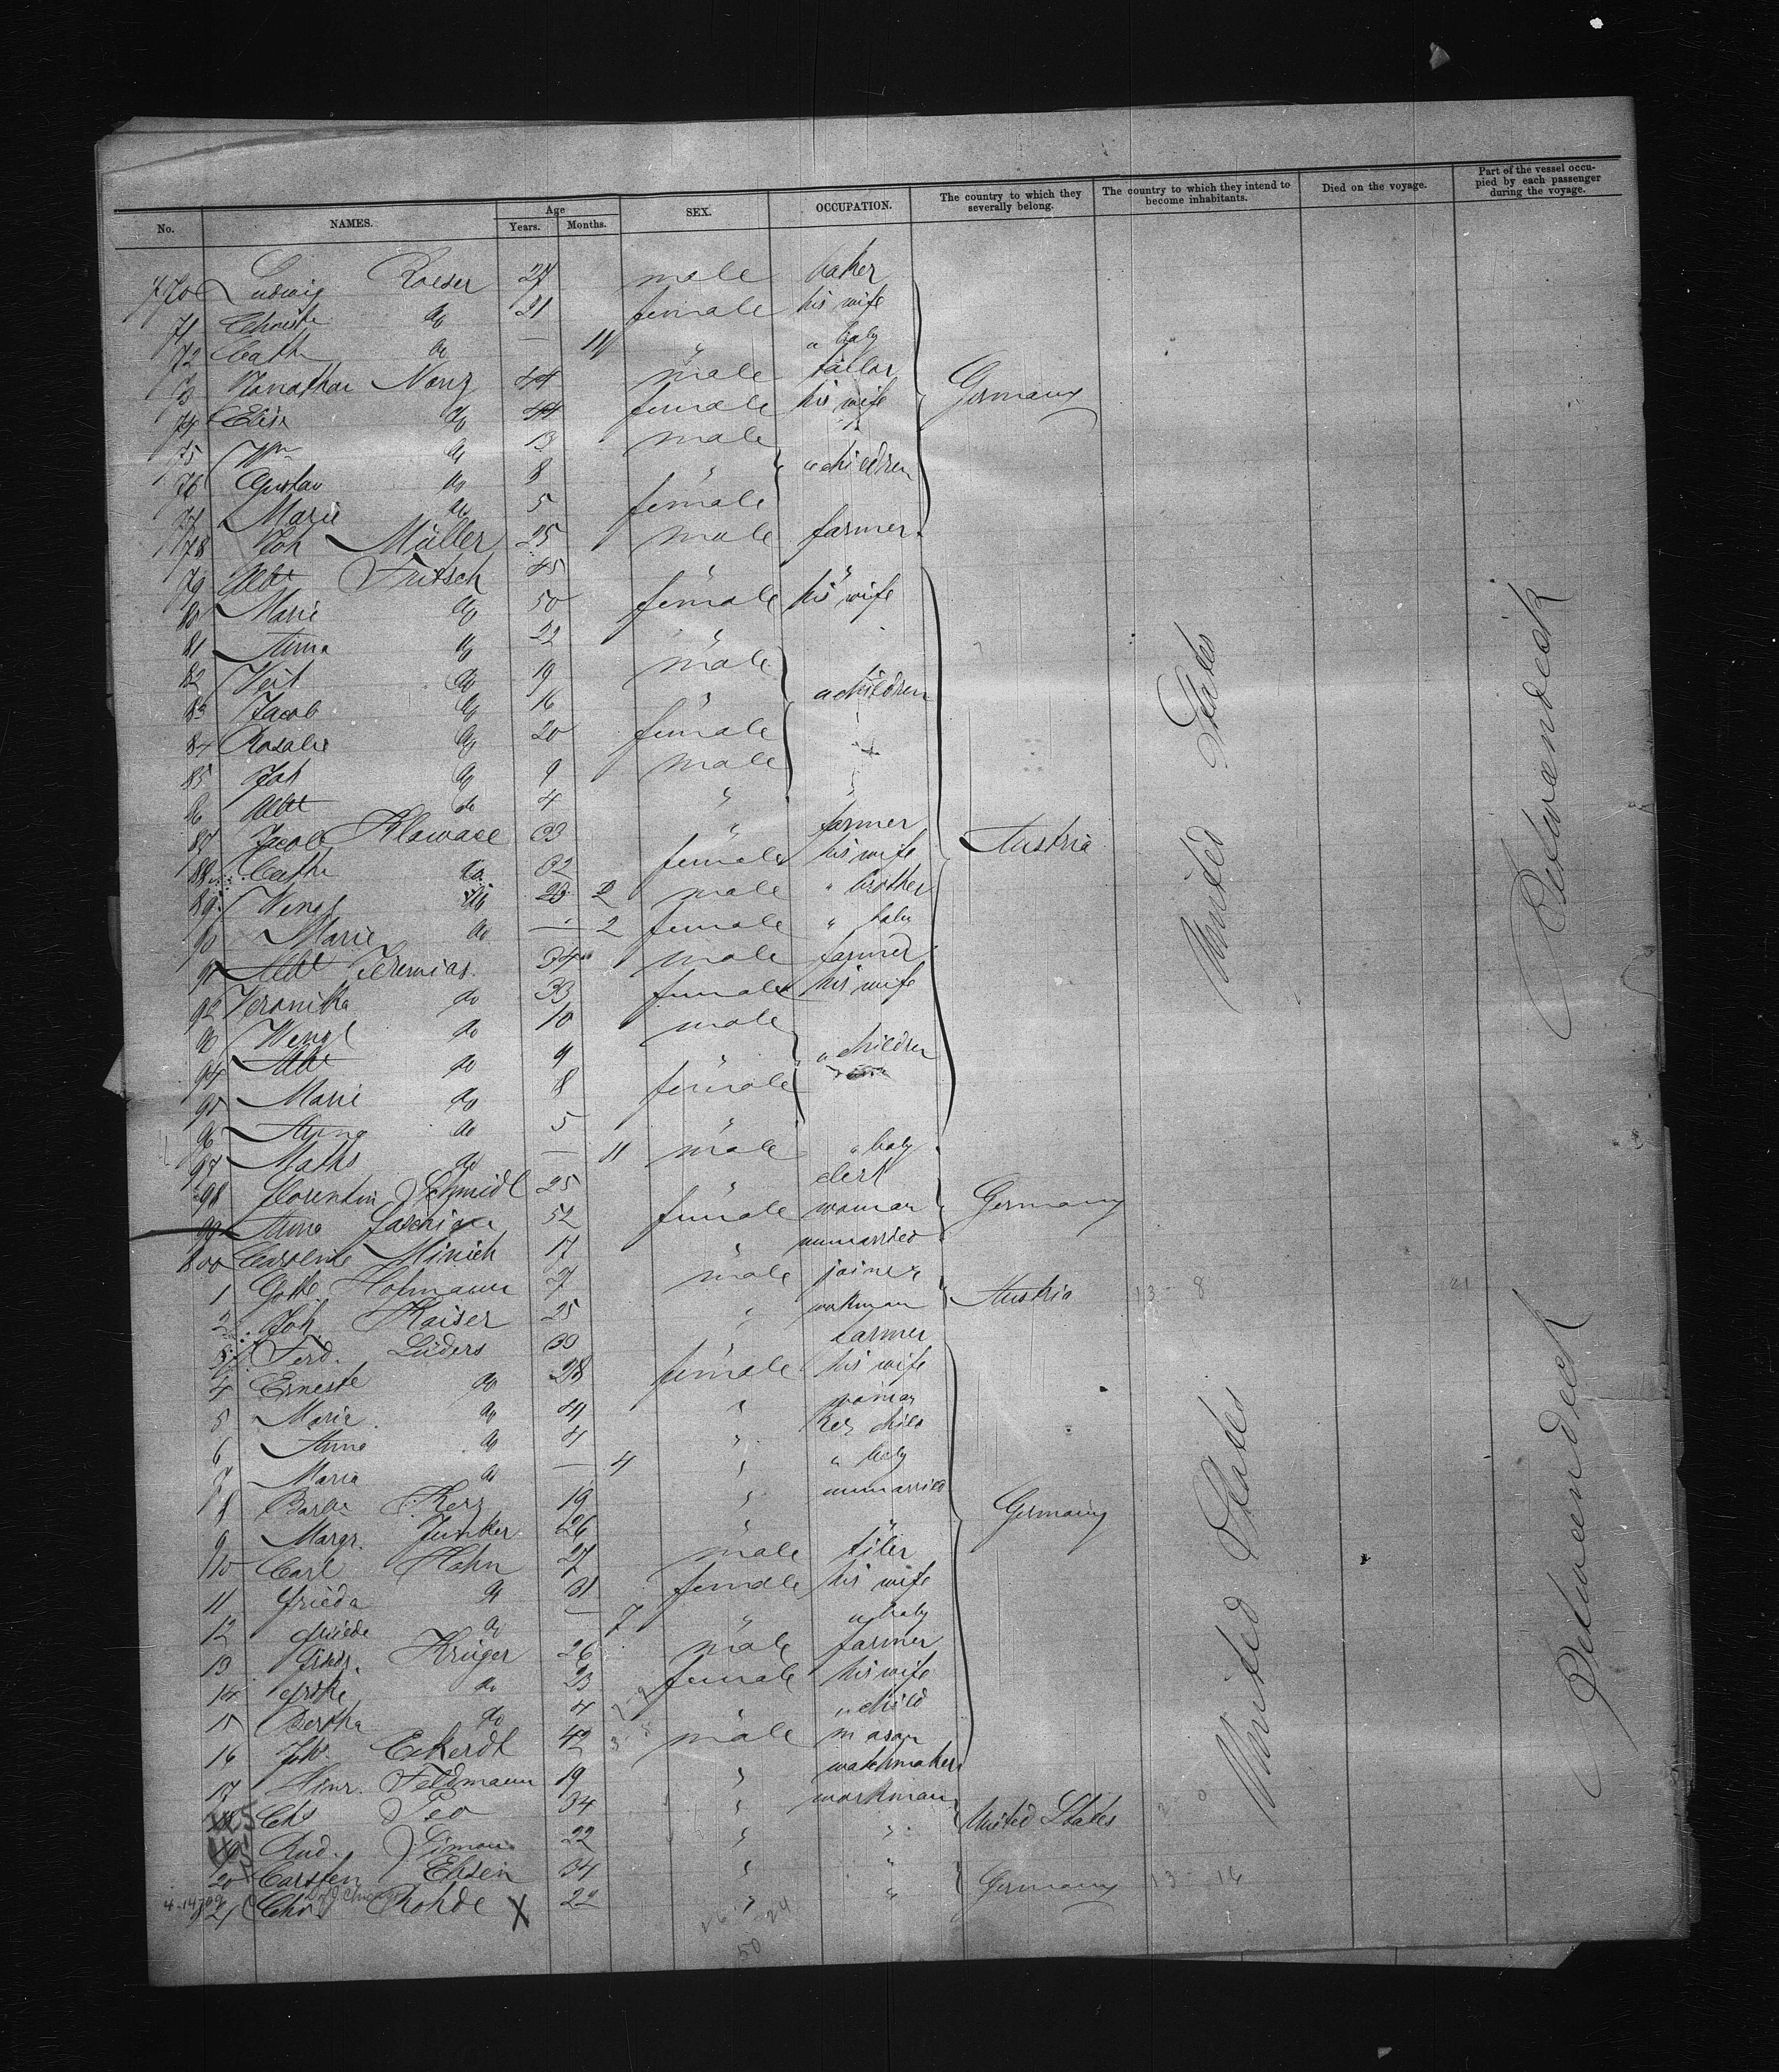 No. NAMES. Age Years. Months. SEX. OCCUPATION. The country to which they severally belong. The country to which they intend to become inhabitants. Died on the voyage. Part of the vessel occupied by each passenger during the voyage.
770 Ludwig Roeser 27 male baker
71 Christe do 21 female his wife
72 Cath do — 11 " " baby
73 Nanz 44 male
74 Elise do 44 female his wife
75 Wm do 13 male
76 Gustav do 8 " " children Germany
77 Marie do 5 female
78 Joh Müller 25 male farmer
79 Albt Fritsch 45 " "
80 Marie do 50 female his wife
81 Anna do 22 "
82 Veit do 19 male
83 Jacob do 16 " " children
84 Rosalie do 20 female
85 Joh do 9 male
86 Albt do 4 "
87 Jacob 33 " farmer Austria
88 Cathr do 32 female his wife
89 Wenzl do 23 male " brother
90 Marie do — 2 female " baby
91 Albt Jeremias 34 male farmer
92 Veronika do 33 female his wife
93 Wenzl do 10 male
94 Albt do 9 " " children
95 Marie do 8 female
96 Anna do 5 "
97 Maths do — 11 male " baby
98 Florentin Schmidt 25 " clerk
99 Anna 52 female woman Germany
800 Caroline Minich 17 " unmarried
1 Gottl. Hofmann male joiner
2 Joh. Kaiser 25 " workman Austria
3 Ferd. Lüders 30 " farmer
4 Erneste do 28 female his wife
5 Marie do " woman
6 Anna do 4 " her child
7 Maria do — 4 " " baby
8 Barba 19 " unmarried
9 Margr. Junker 26 " " Germany
10 Carl Hahn 27 male tiler
11 Frieda do 31 female his wife
12 Friede do — 7 " " baby
13 Friedr. Krüger 26 male farmer
14 do 23 female his wife
15 Bertha do 4 " " child
16 Joh. Eckerdt 42 male mason
17 Hinr. Feldmann 19 " watchmaker
18 Chs 34 " workman United States
19 Rud. Simon 22 " "
20 Carsten Ehsen 34 " " Germany
821 Chr. Rohde X 22 " "
United States
United States
Betweendeck
Betweendeck